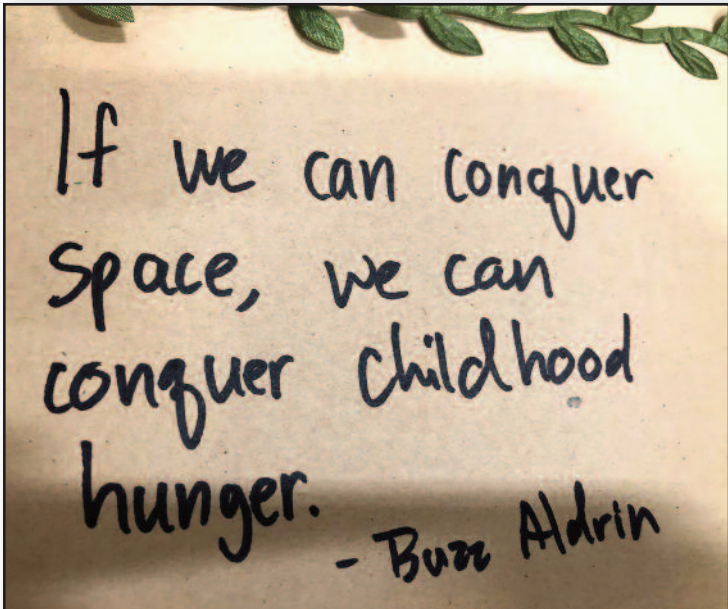 If we can conquer
space, we can
conquer childhood
hunger.
- Buzz Aldrin